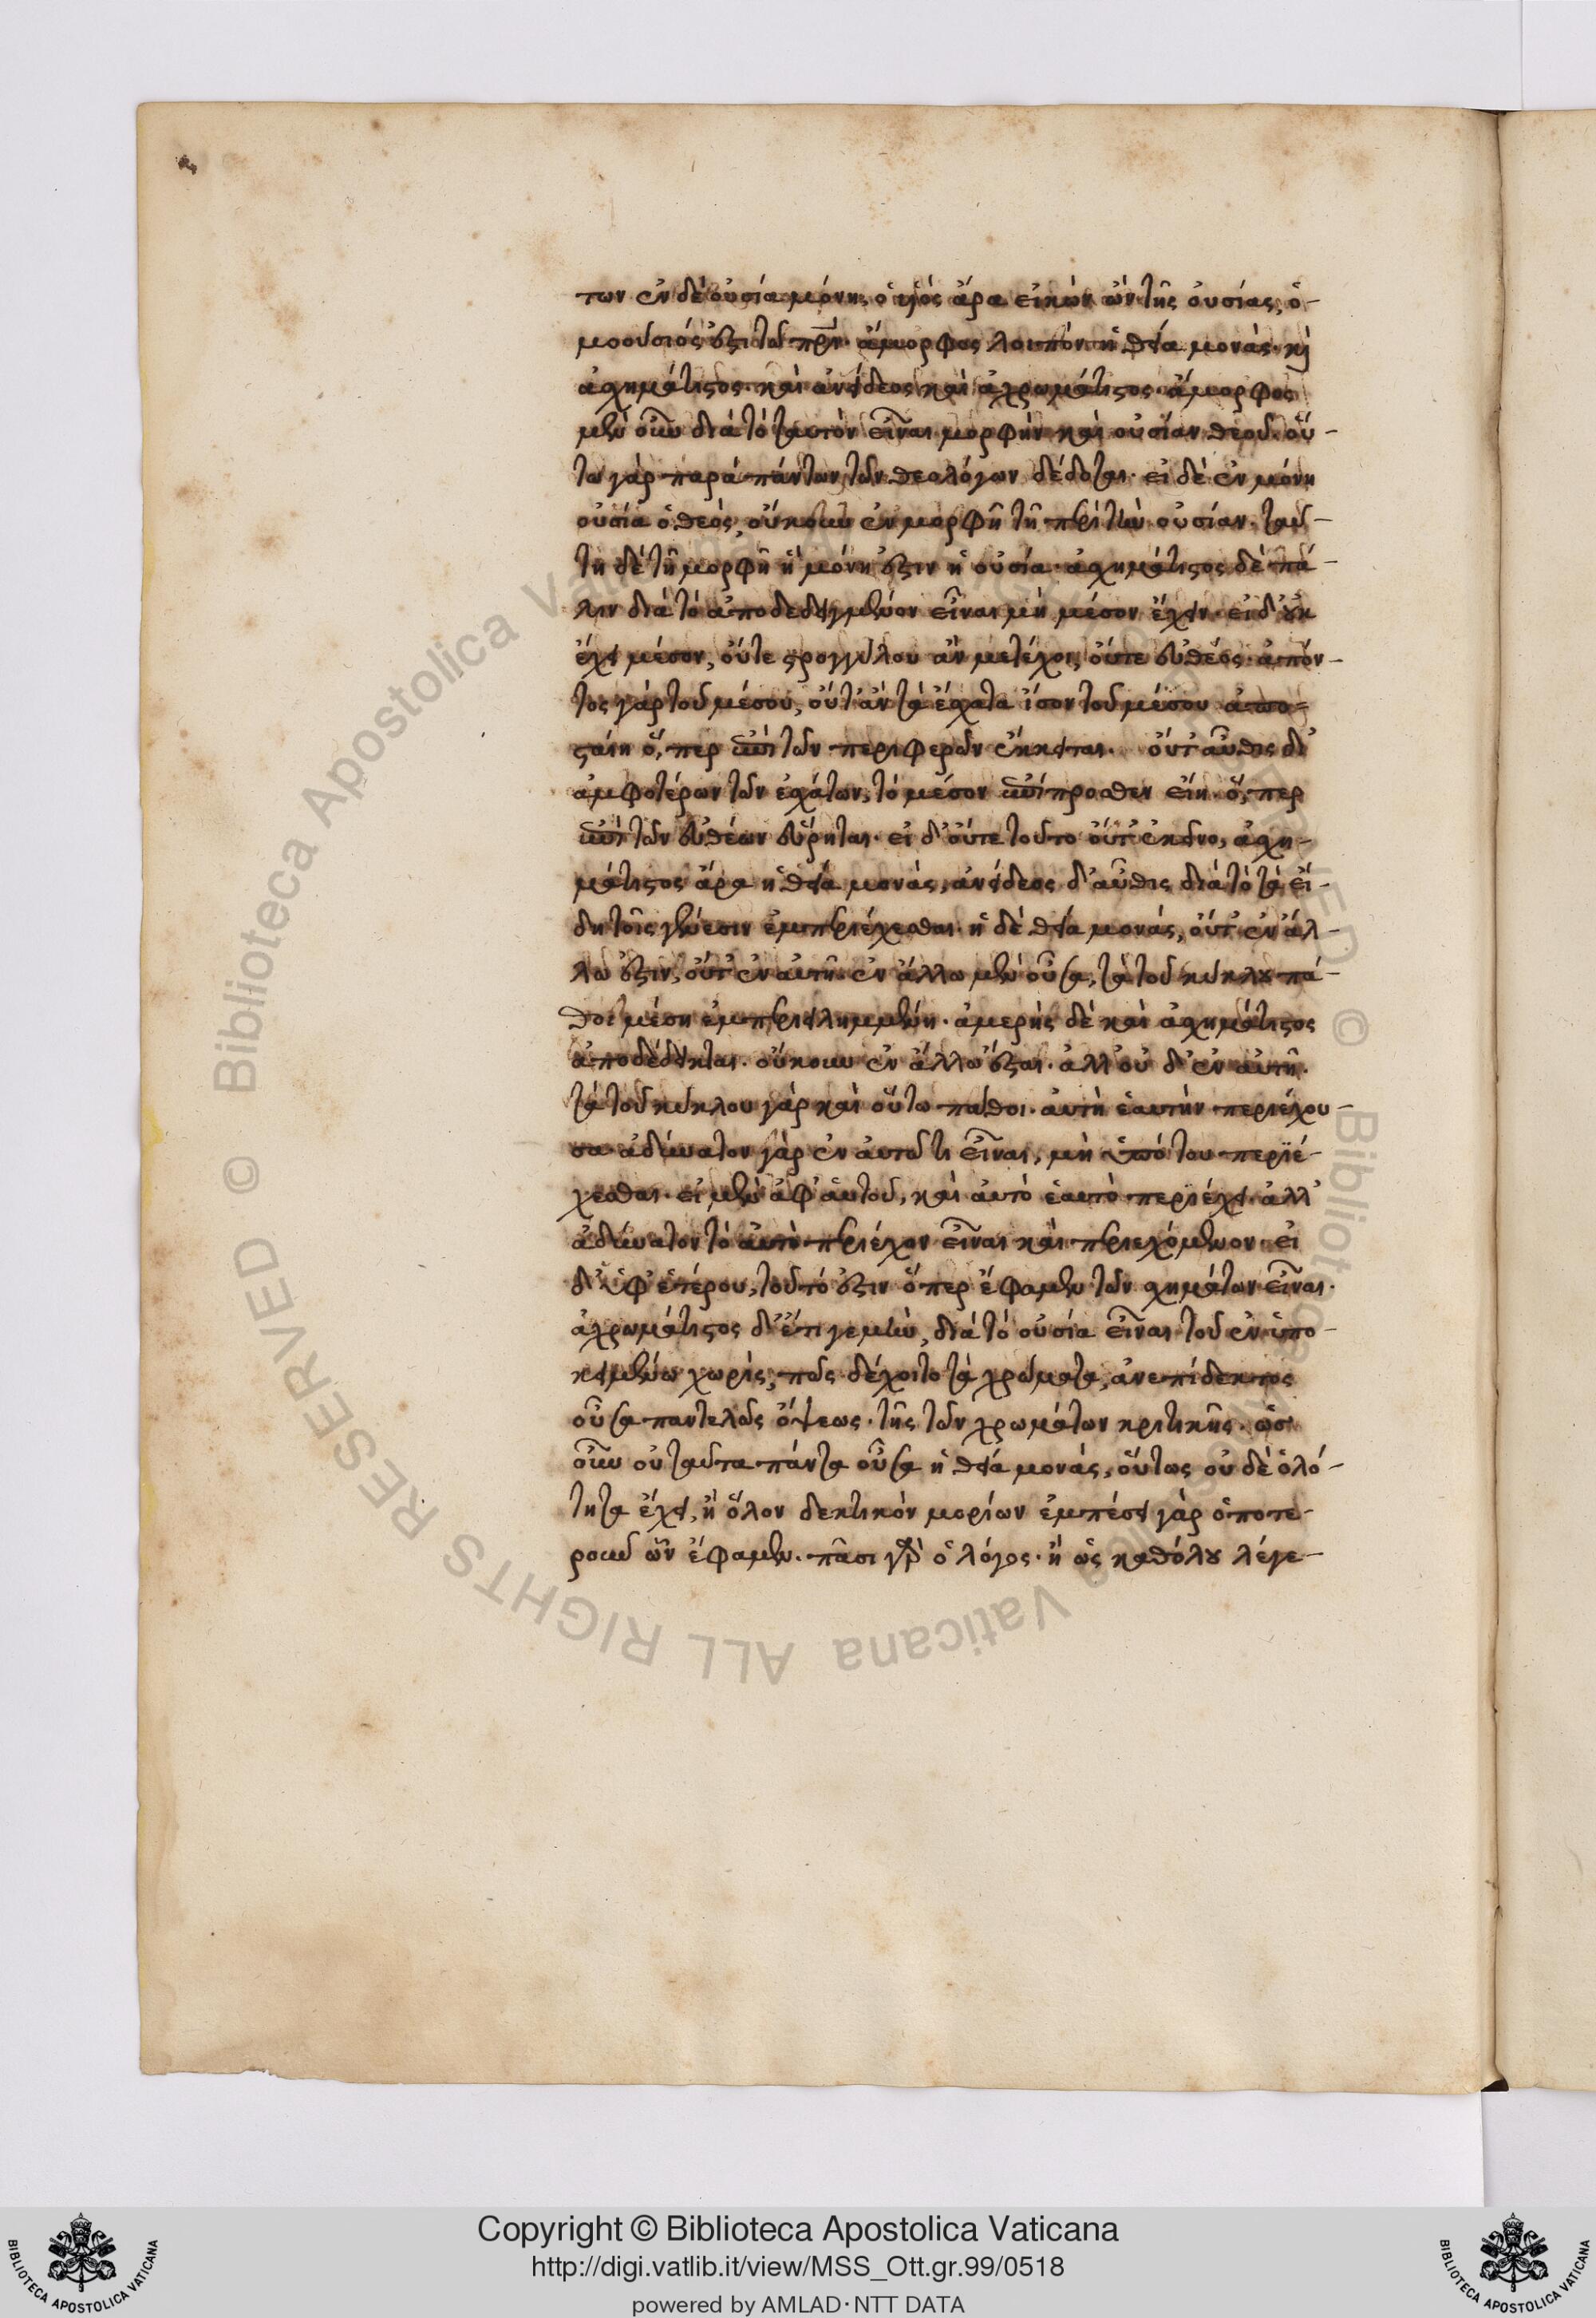 των ἐν δὲ οὐσία μόνη, ὁ υἱός ἄρα εἰκών ὢν τῆς οὐσίας, ὁ-
μοούσιός ἐστι τῶ πρι. ἄμορφος λοιπόν ἡ θεία μονὰς. καὶ
ἀσχημάτιστος. καὶ ἀνείδεος καὶ ἀχρωμάτιστος. ἄμορφος
μὲν οὖν διὰ τὸ ταυτὸν εἶναι μορφὴν καὶ οὐσίαν θεοῦ. οὕ-
τω γὰρ παρὰ πάντων τῶν θεολόγων δέδοται. εἰ δὲ ἐν μόνη
οὐσία ὁ θεός, οὔκουν ἐν μορφῆ τῆ περὶ τὴν οὐσίαν. ταύ-
τη δὲ τῆ μορφῆ ἢ μόνη ἐστιν ἡ οὐσία. ἀσχημάτιστος δὲ πά-
λιν διὰ τὸ ἀποδεδειγμένον εἶναι μὴ μέσον ἔχειν. εἰ δ' οὐκ
ἔχει μέσον, οὔτε στρογγύλου ἂν μετέχοι, οὔτε εὐθέος. ἀπόν-
τος γὰρ τοῦ μέσου, οὔτ' ἂν τὰ ἔσχατα ἴσον τοῦ μέσου ἀπο-
σταίη ὅ, περ ἐπὶ τῶν περιφερῶν ἔγκειται. οὔτ' αὖθις δι'
ἀμφοτέρων τῶν ἐσχάτων, τὸ μέσον ἐπίπροσθεν εἴη. ὅ, περ
ἐπὶ τῶν εὐθέων εὕρηται. εἰ δ' οὔτε τοῦτο οὔτ' ἐκεῖνο, ἀσχη-
μάτιστος ἄρα ἡ θεία μονὰς, ἀνείδεος δ' αὖθις διὰ τὸ τὰ εἴ-
δη τοῖς γένεσιν ἐμπεριέχεσθαι. ἡ δὲ θεία μονάς, οὔτ' ἐν ἄλ-
λω ἐστιν, οὔτ' ἐν αὐτῆ. ἐν ἄλλω μὲν οὖσα, τὰ τοῦ κύκλου πά-
θοι μέση ἐμπεριειλημμένη. ἀμερὴς δὲ καὶ ἀσχημάτιστος
ἀποδέδεικται. οὔκουν ἐν ἄλλω ἔσται. ἀλλ' οὐ δ' ἐν αὐτῆ.
τὰ τοῦ κύκλου γὰρ καὶ οὕτω πάθοι. ἀυτὴ ἑαυτὴν περιέχου-
σα. ἀδύνατον γὰρ ἐν ἀυτῶ τι εἶναι, μὴ ὑπό του περιέ-
χεσθαι. εἰ μὲν ἀφ' ἁυτοῦ, καὶ ἀυτὸ ἑαυτὸ περιέχει. ἀλλ'
ἀδύνατον τὸ ἀυτὸ περιέχον εἶναι καὶ περιεχόμενον. εἰ
δ' ὑφ' ἑτέρου, τοῦτό ἐστιν ὅπερ ἔφαμεν τῶν σχημάτων εἶναι.
ἀχρωμάτιστος δ' ἔτι γε μὴν, διὰ τὸ οὐσία εἶναι τοῦ ἐν ὑπο-
κειμένω χωρὶς, πῶς δέχοιτο τὰ χρώματα, ἀνεπίδεκτος
οὖσα παντελῶς ὄψεως. τῆς τῶν χρωμάτων κριτικῆς. ὡσ
οὖν οὐ ταῦτα πάντα οὖσα ἡ θεία μονάς, οὕτως οὐ δὲ ὁλό-
τητα ἔχει, ἢ ὅλον δεκτικὸν μορίων ἐμπέσει γὰρ ὁποτε-
ρουοῦ ὧν ἔφαμεν. πᾶσι ὁ λόγος. ἢ ὡς καθόλου λέγε-
Copyright © Biblioteca Apostolica Vaticana
http://digi.vatlib.it/view/MSS_Ott.gr.99/0518
powered by AMLAD·NTT DATA
BIBLIOTECA APOSTOLICA VATICANA
BIBLIOTECA APOSTOLICA VATICANA
© Biblioteca Apostolica Vaticana ALL RIGHTS RESERVED